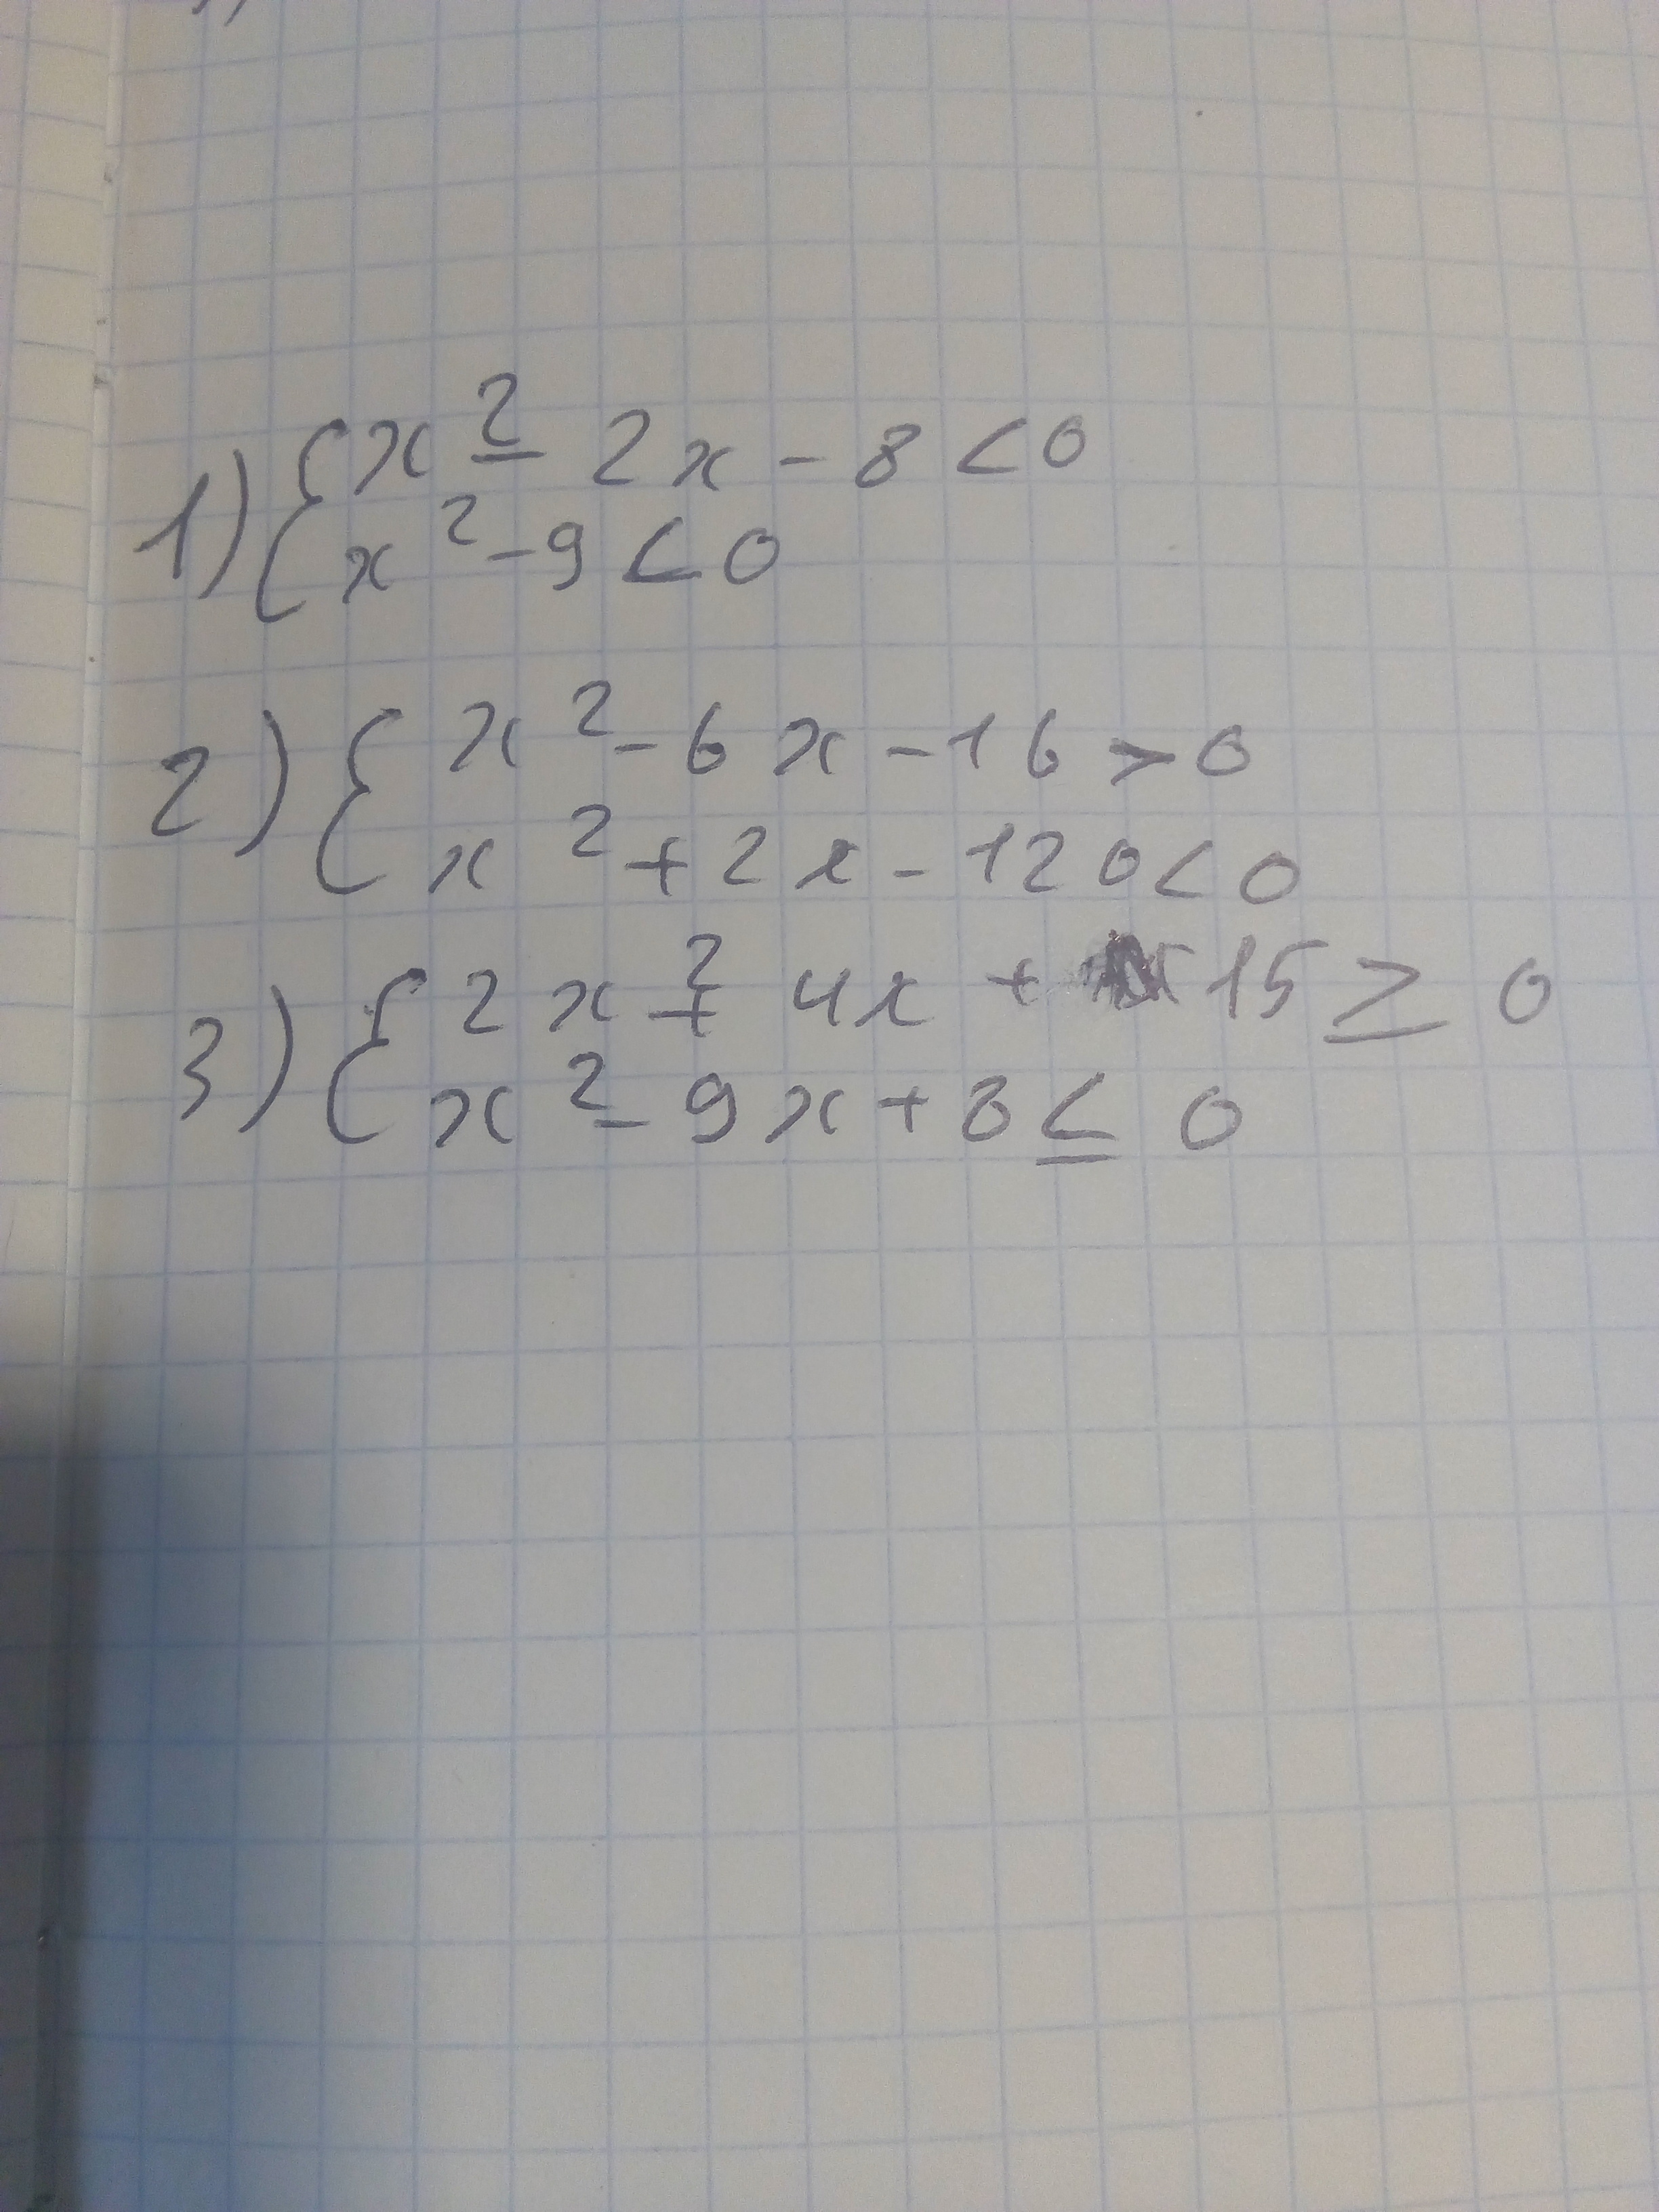 1) { x² - 2x - 8 < 0
x² - 9 < 0
2) { x² - 6x - 16 > 0
x² + 2x - 120 < 0
3) { 2x² + 4x + 15 ≥ 0
x² - 9x + 8 ≤ 0